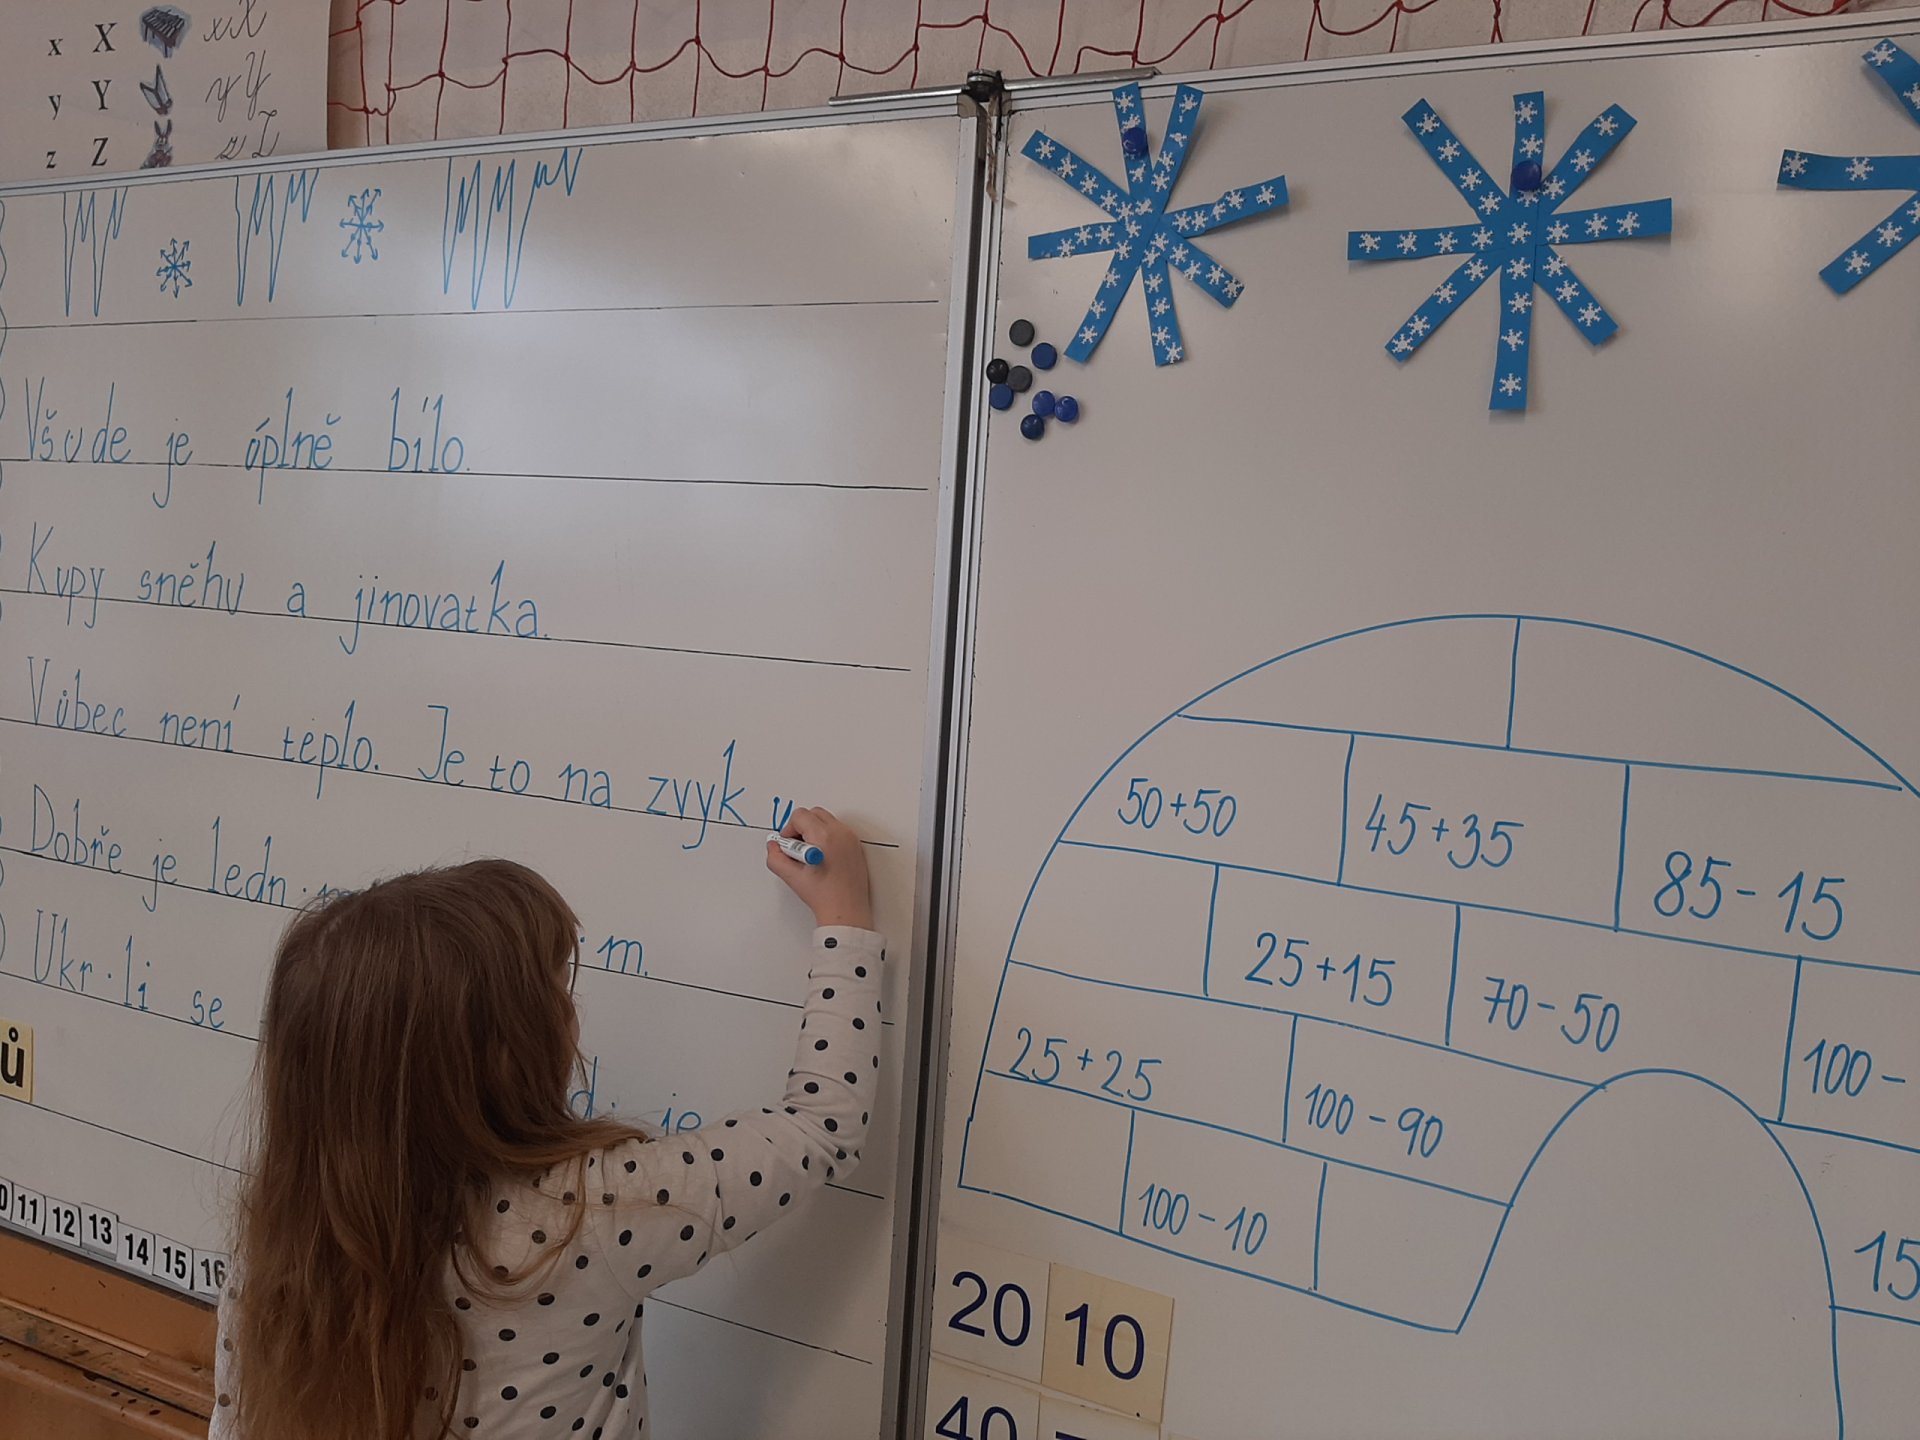 x X xX
y Y yY
z Z zZ
Všude je úplně bílo.
Kupy sněhu a jinovatka.
Vůbec není teplo. Je to na zvyk u
Dobře je ledn·m
·m.
Ukr·li se
je
ů
11 12 13 14 15 16
50+50 45+35 85-15
25+15 70-50 100-
25+25 100-90
100-10 15
20 10
40